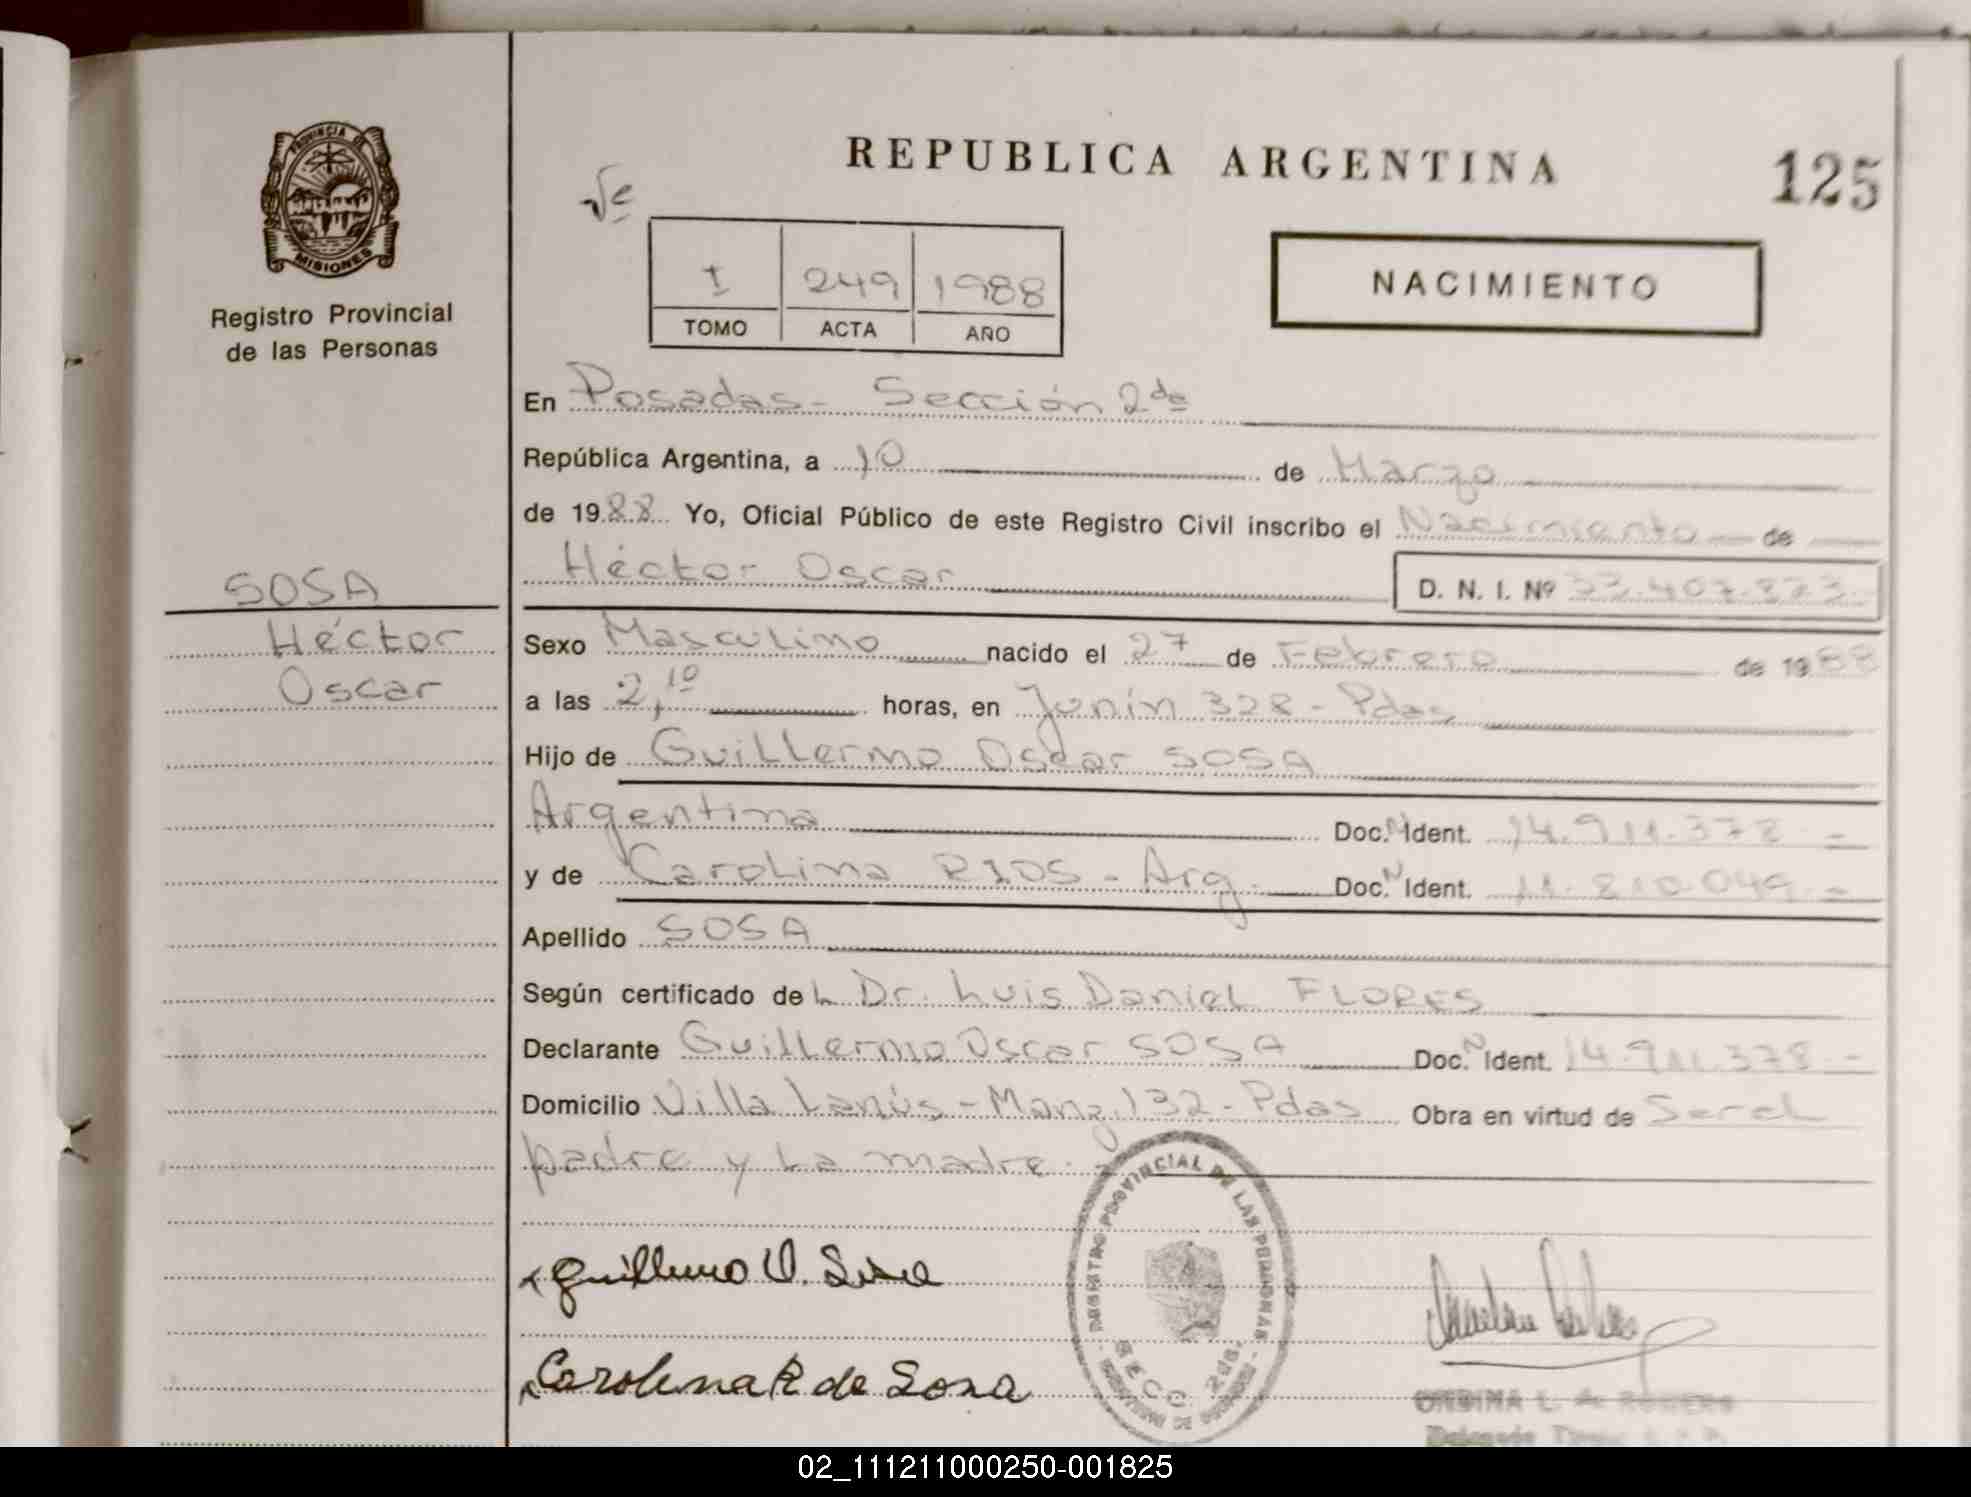 REPUBLICA ARGENTINA
125
PROVINCIA DE
MISIONES
Registro Provincial
de las Personas
I 249 1988
TOMO ACTA AÑO
NACIMIENTO
En Posadas - Sección 2da
República Argentina, a 10 de Marzo
de 1988 Yo, Oficial Público de este Registro Civil inscribo el Nacimiento de
Héctor Oscar D. N. I. Nº 33.407.873
SOSA
Héctor
Oscar
Sexo Masculino nacido el 27 de Febrero de 1988
a las 2,10 horas, en Junín 328 - Pdas
Hijo de Guillermo Oscar SOSA
Argentina Doc. N Ident. 14.911.378 -
y de Carolina RIOS - Arg. Doc. N Ident. 11.810.049 -
Apellido SOSA
Según certificado del Dr. Luis Daniel FLORES
Declarante Guillermo Oscar SOSA Doc. N Ident. 14.911.378 -
Domicilio Villa Lanús - Manz. 132 - Pdas Obra en virtud de Ser el
padre y la madre.
REGISTRO PROVINCIAL DE LAS PERSONAS
SECC. 2da.
Guillermo O. Sosa
Carolina R de Sosa
02_111211000250-001825